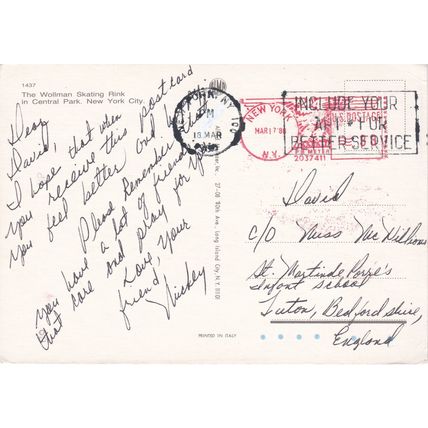 1437
The Wollman Skating Rink
in Central Park, New York City.
Dear
David,
I hope that when
you receive this postcard
you feel better and
Please Remember
you have a lot of friends
that care and pray for you
Love, Your
friend,
Mickey
NEW YORK, NY 100
PM
18 MAR
NEW YORK
MAR 17 '86
N.Y.
U.S. POSTAGE
METER
2037411
INCLUDE YOUR
APT # FOR
BETTER SERVICE
27-08 40th Ave., Long Island City, N.Y. 11101
PRINTED IN ITALY
David
C/O Miss McWilliams
St. Martin de Porre's
Infant School
Luton, Bedfordshire,
England